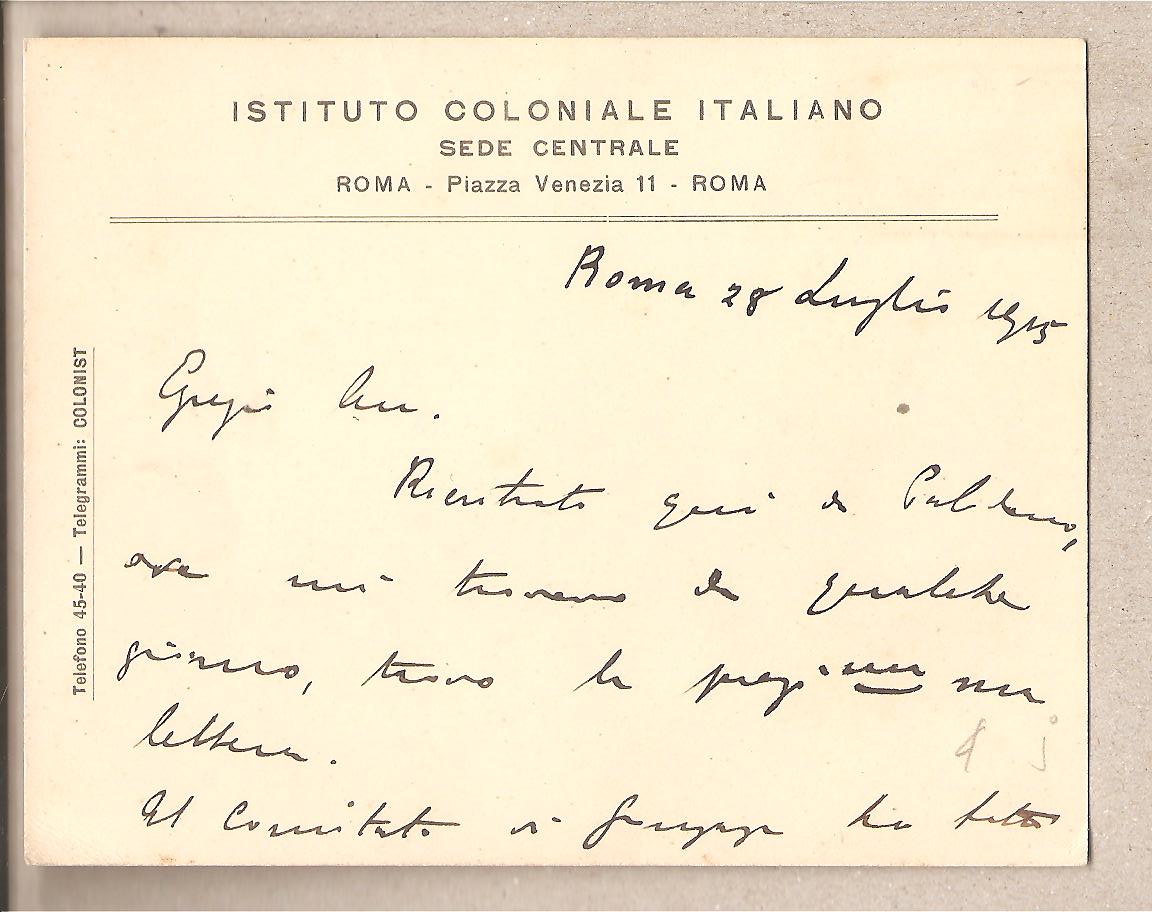 ISTITUTO COLONIALE ITALIANO
SEDE CENTRALE
ROMA - Piazza Venezia 11 - ROMA
Telefono 45-40 — Telegrammi: COLONIST
Roma 28 Luglio 1915
Egregio Avv.
Rientrato qui da
ove mi trovavo da qualche
giorno, trovo la preg.ma sua
lettera.
Il Comitato di ha fatto